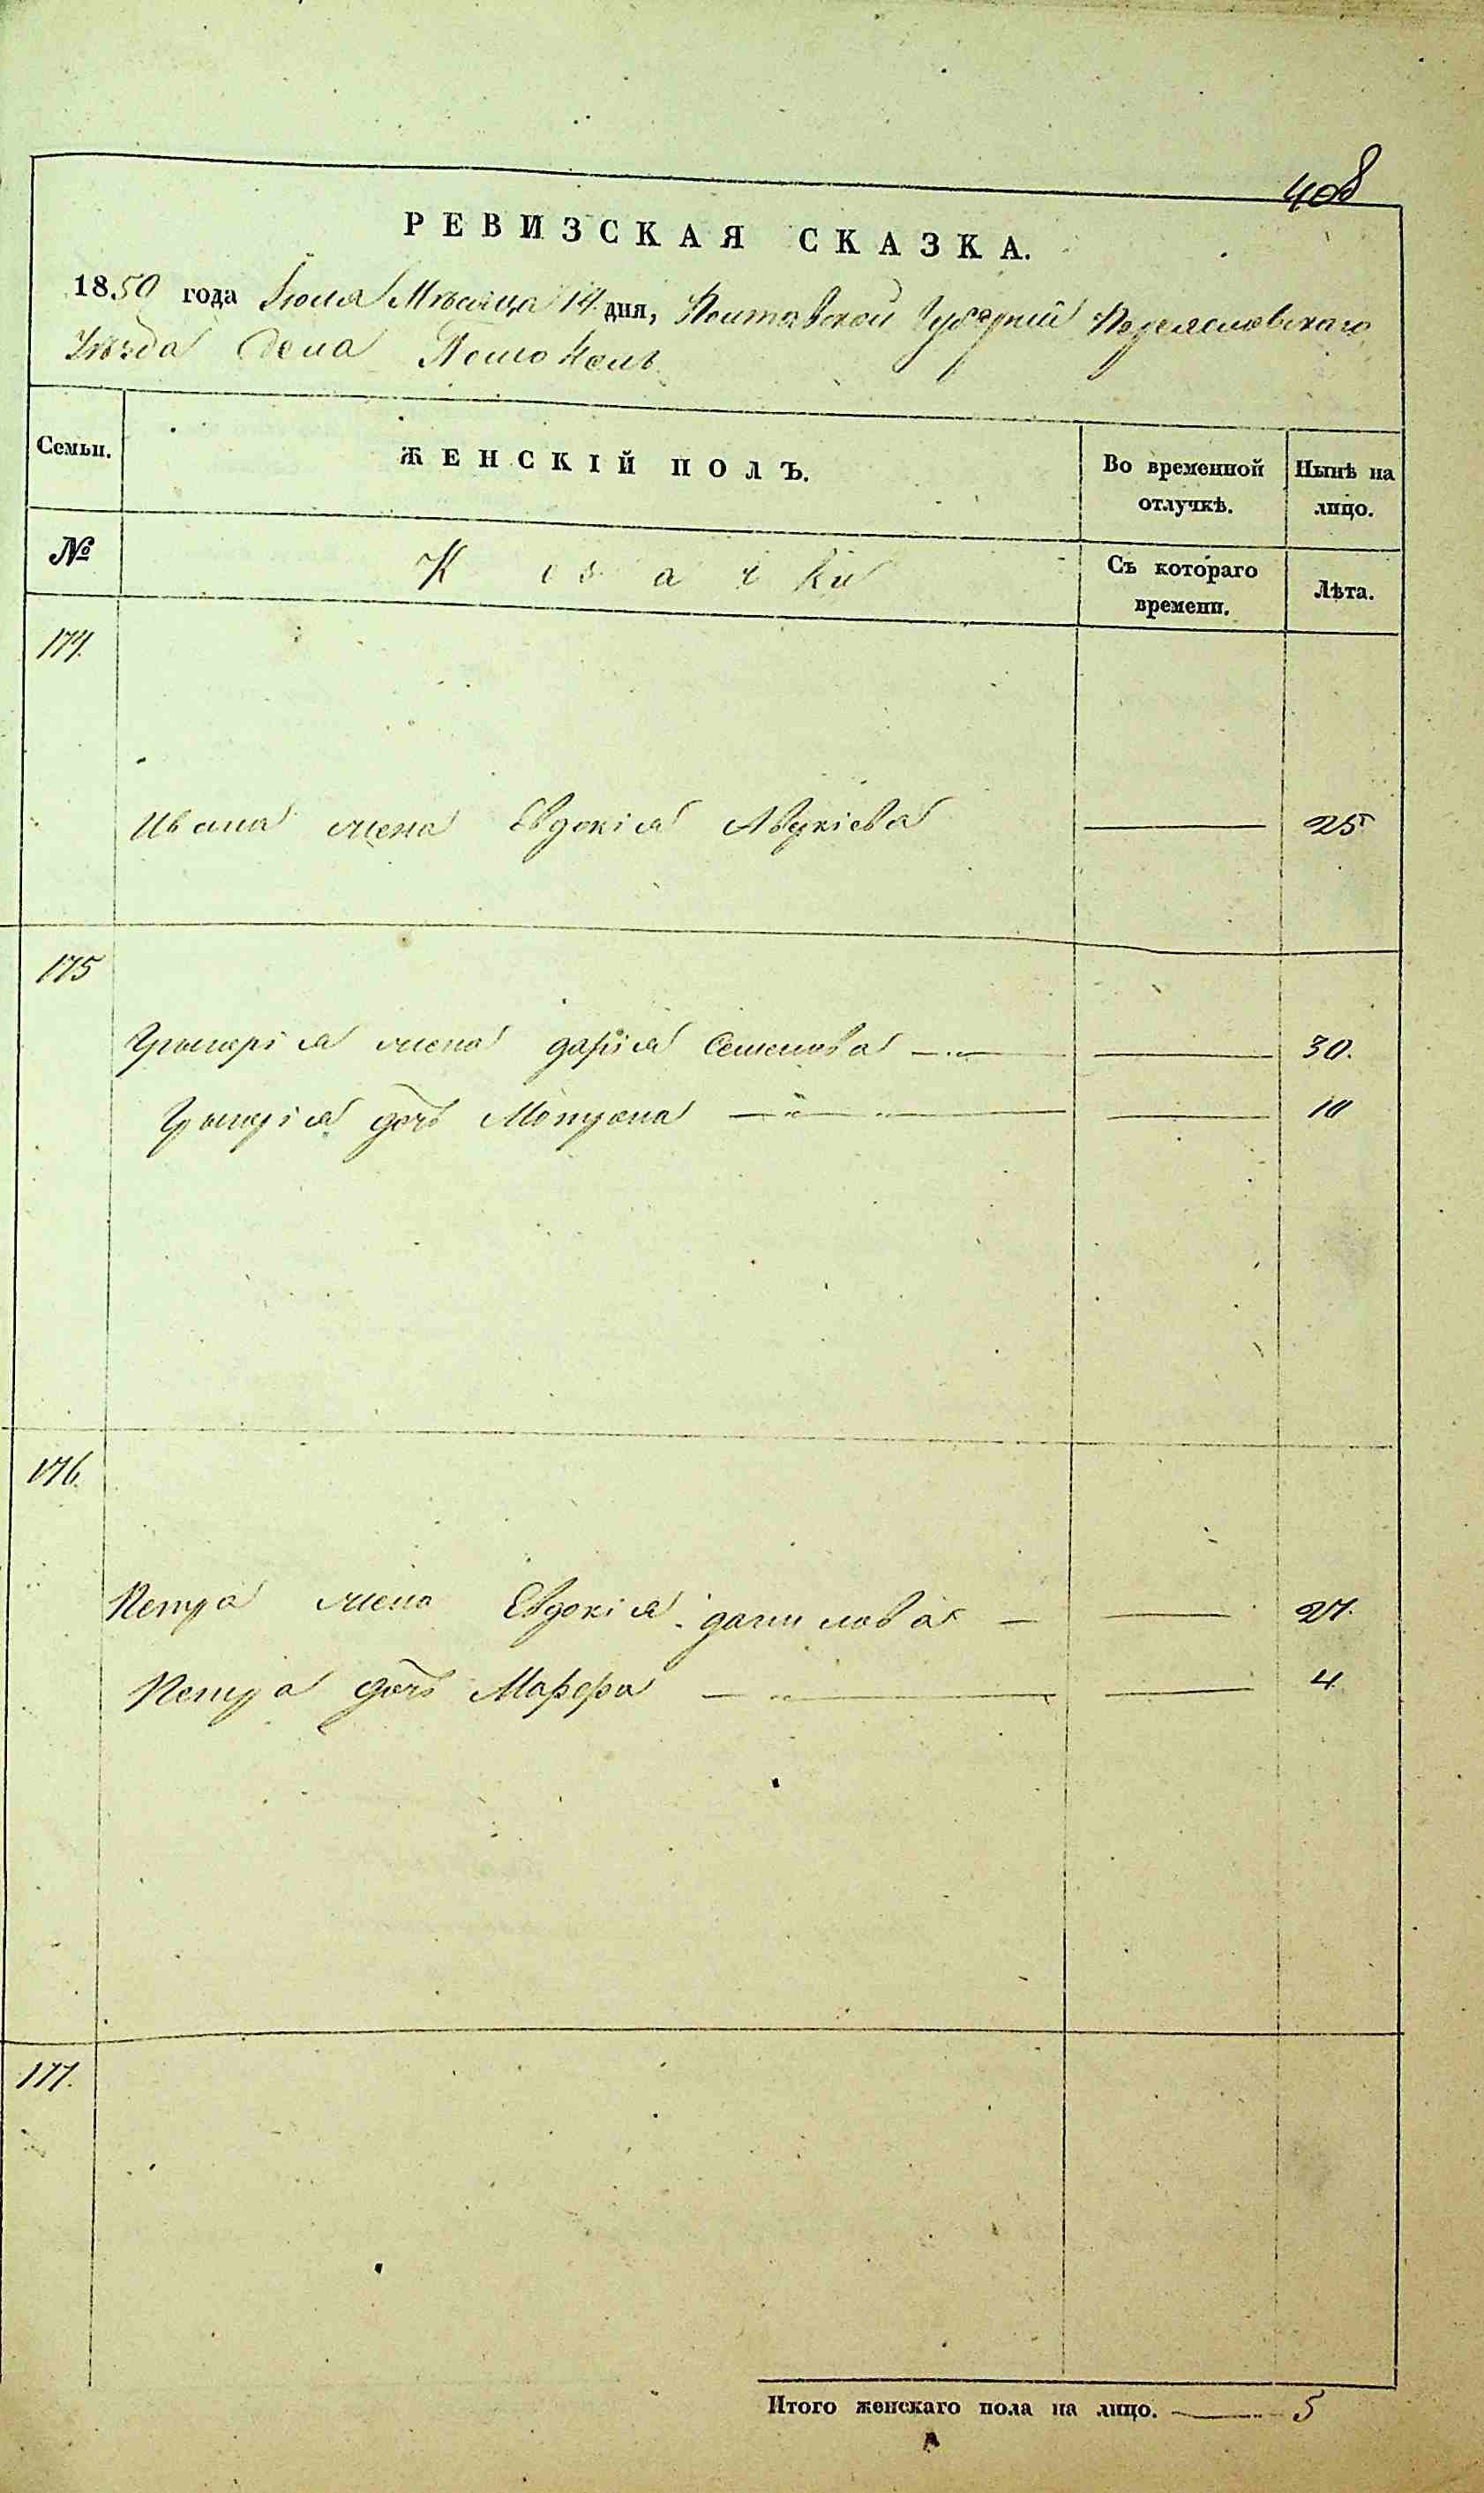 408
РЕВИЗСКАЯ СКАЗКА.
1850 года Іюля Мѣсяца 14 дня, Полтавской Губерніи Переяславскаго
Уѣзда Села
Семьи. ЖЕНСКІЙ ПОЛЪ. Во временной отлучкѣ. Нынѣ на лицо.
№ Козачки Съ котораго времени. Лѣта.
174.
Ивана жена Евдокія Авдкіева 25
175
Григорія жена дарія Семенова 30.
Григорія дочь Мотрона 10
176.
Петра жена Евдокія данилова 27.
Петра дочь Марфа 4
177.
Итого женскаго пола на лицо. 5